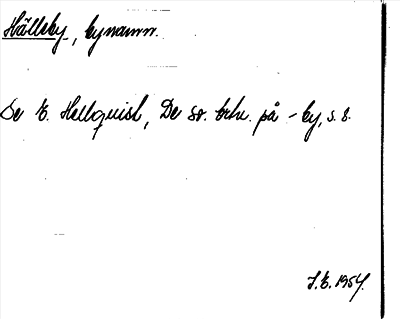 Hällsby, bynamn.
Se E. Hellquist, De sv. ortn. på -by, s. 8.
J.E. 1954.